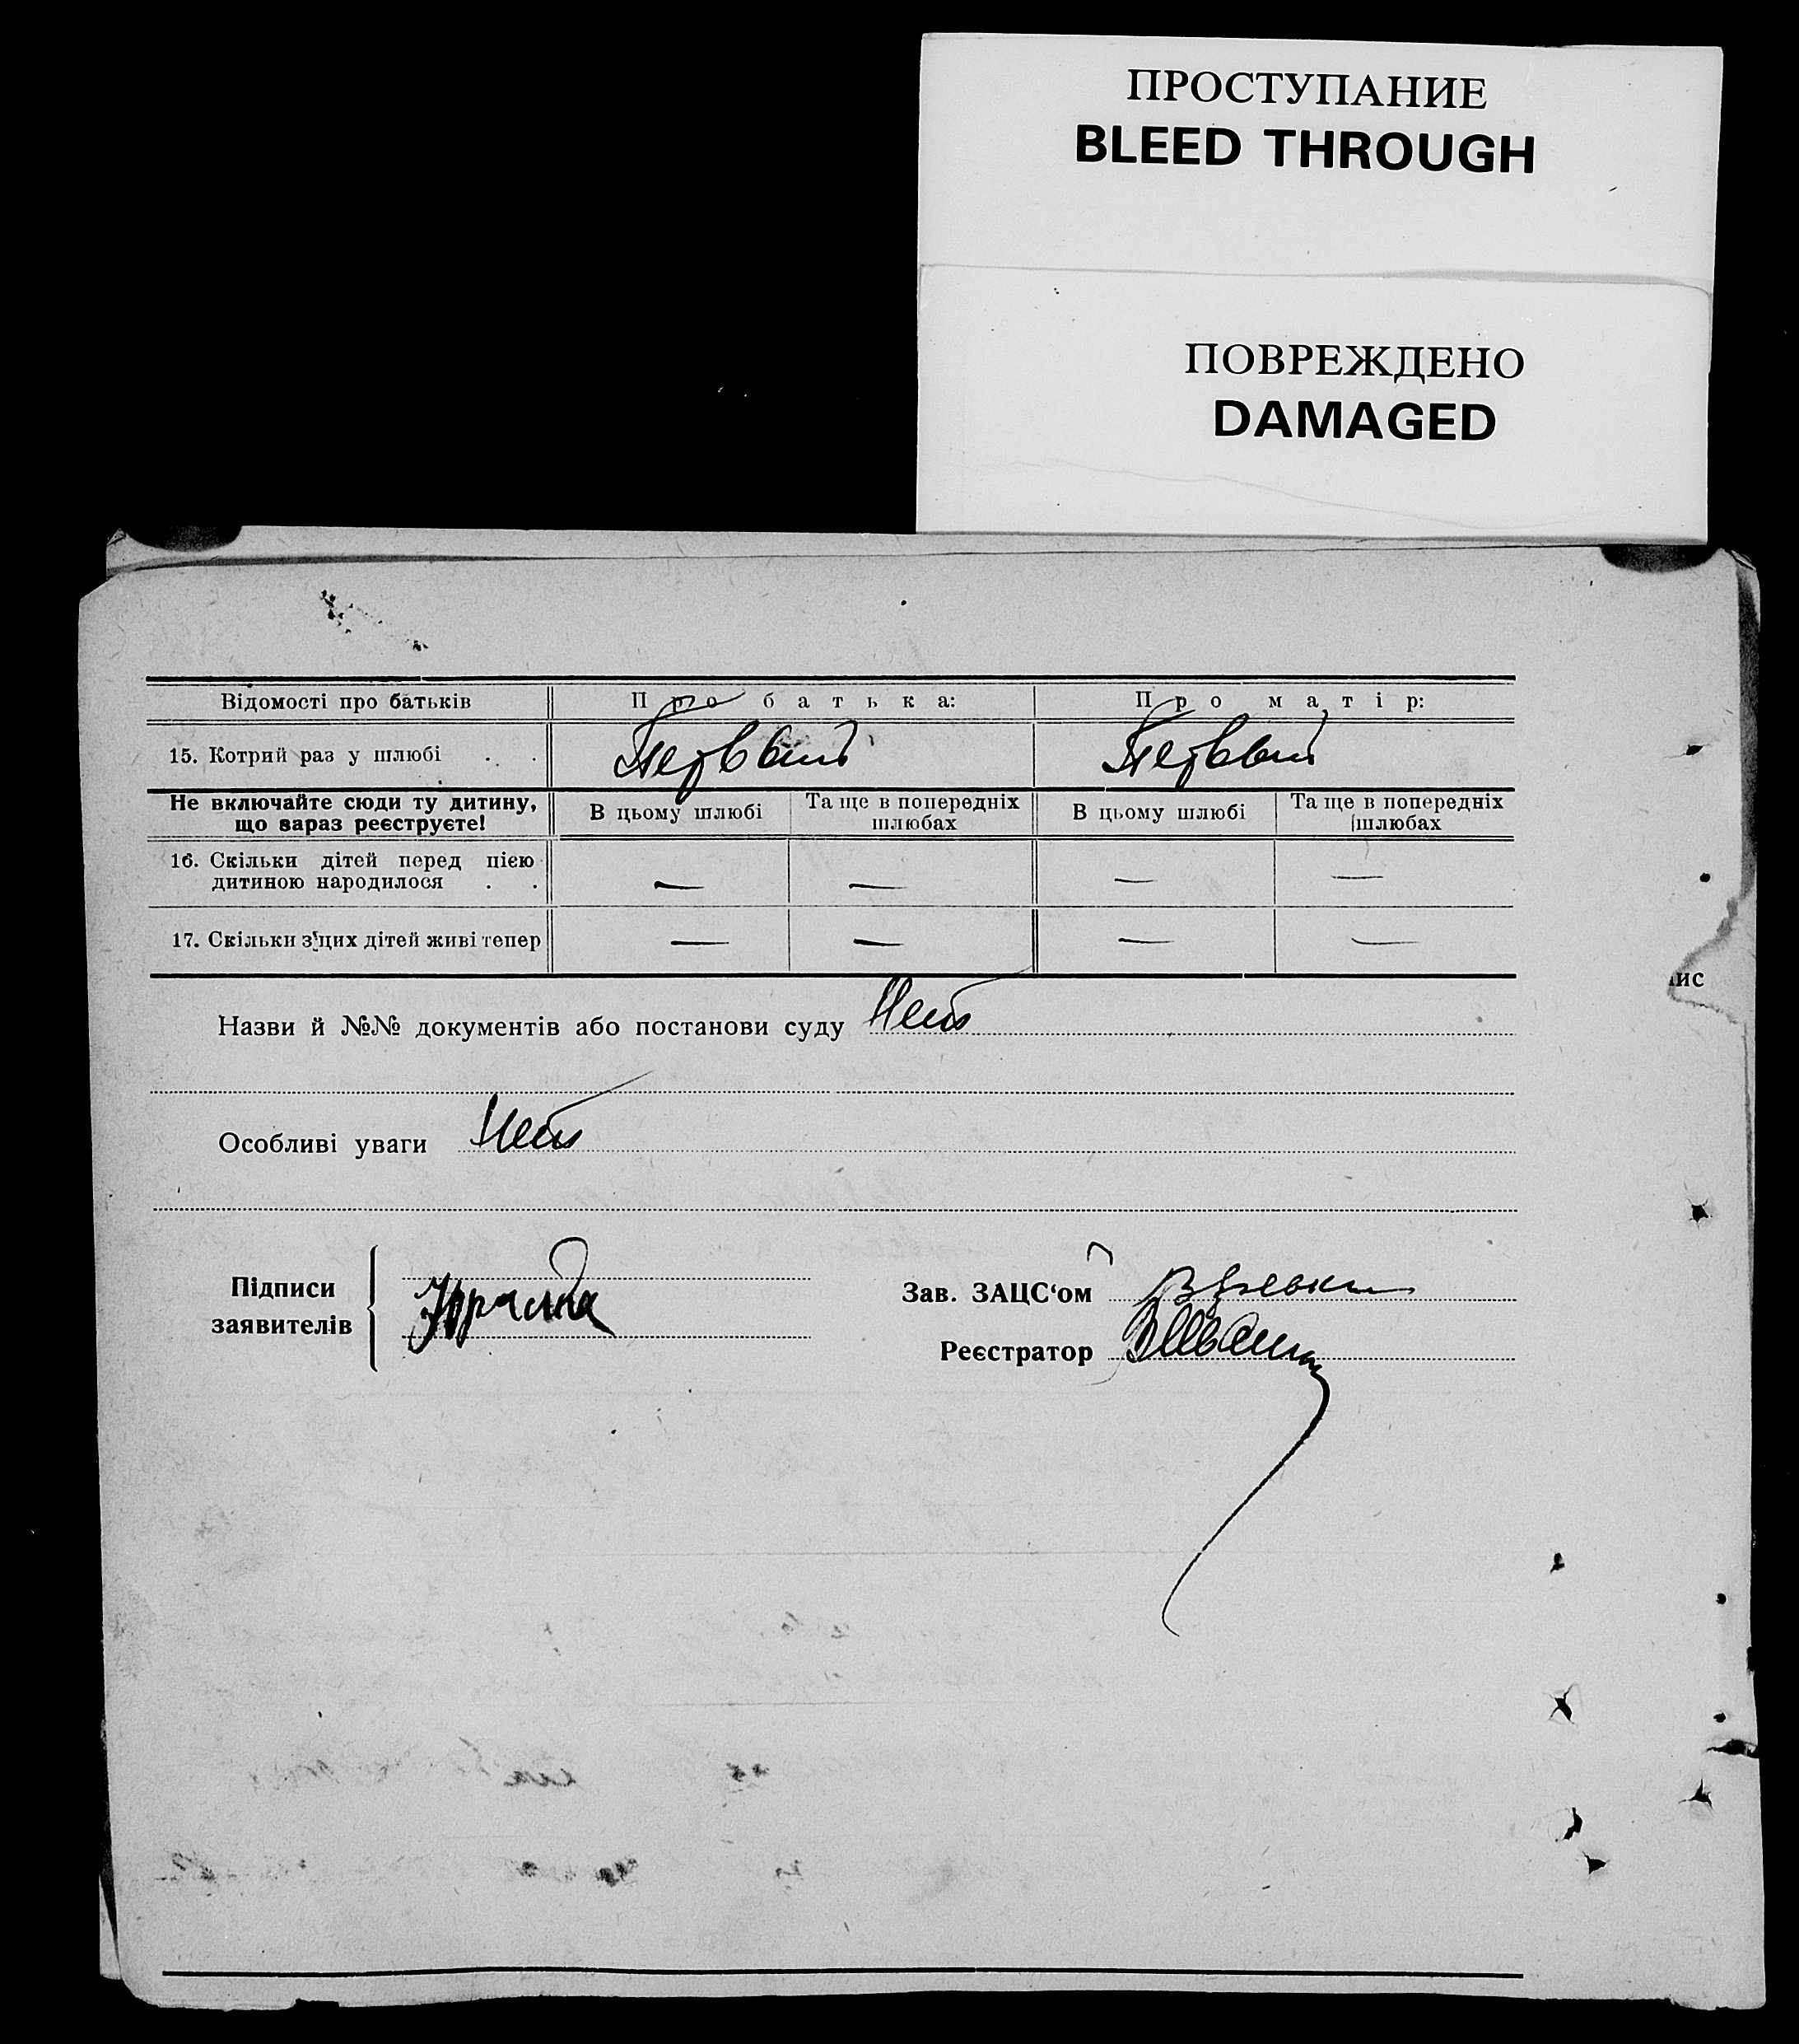 ПРОСТУПАНИЕ
BLEED THROUGH
ПОВРЕЖДЕНО
DAMAGED
Відомості про батьків Про батька: Про матір:
15. Котрий раз у шлюбі . . Первый Первый
Не включайте сюди ту дитину, що зараз реєструєте! В цьому шлюбі Та ще в попередніх шлюбах В цьому шлюбі Та ще в попередніх шлюбах
16. Скільки дітей перед цією — — — —
дитиною народилося . .
17. Скільки з'цих дітей живі тепер — — — —
ис
Назви й №№ документів або постанови суду Нет
Особливі уваги Нет
Підписи
заявителів
Зав. ЗАЦС‘ом
Реєстратор